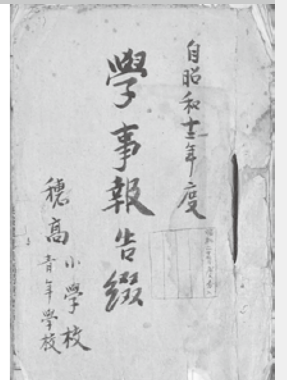 自昭和十二年度
學事報告綴
穂高小學校
青年學校